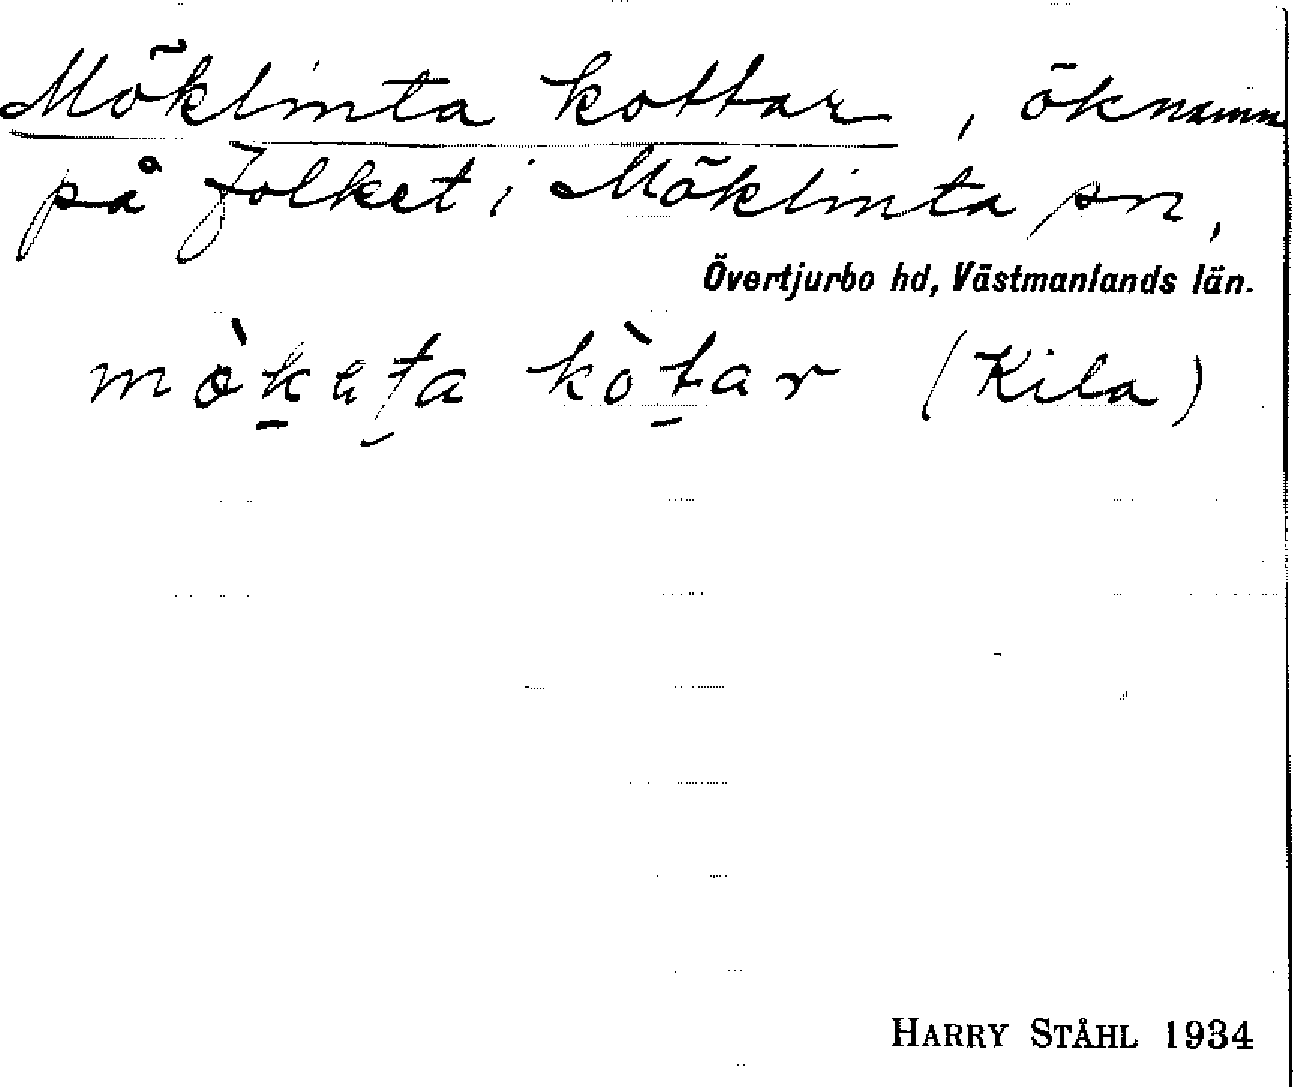 Möklinta kottar, öknamn
på folket i Möklinta sn,
Övertjurbo hd, Västmanlands län.
kòt̠ar (Kila)
HARRY STÅHL 1934